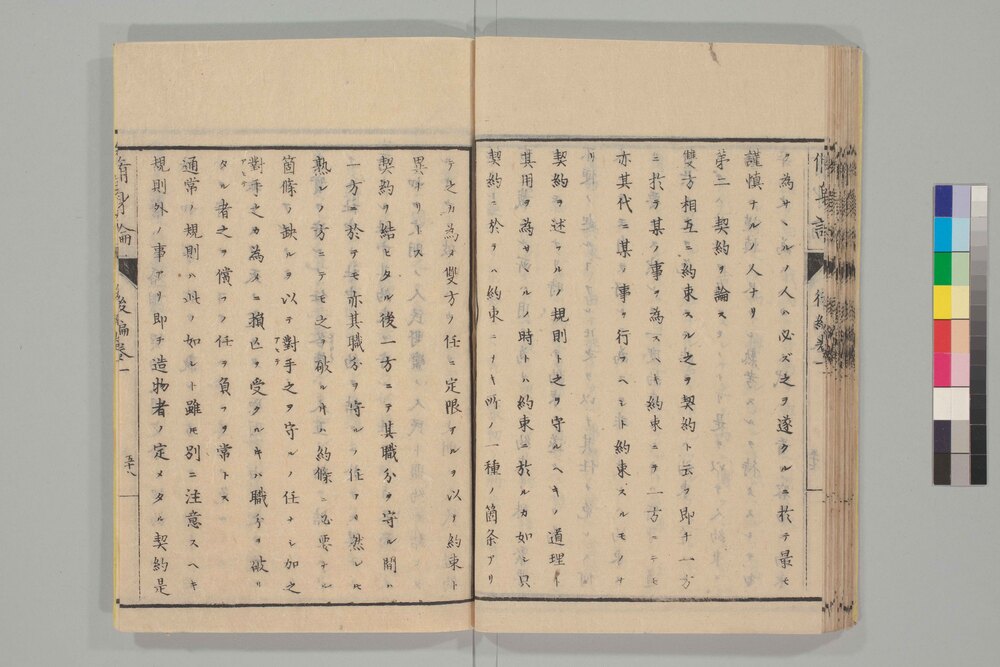 ヲ為サヾルノ人ハ必ズ之ヲ遂クルニ於テ最モ
謹慎ナルノ人ナリ
第二 契約ヲ論ス
雙方相互ニ約束スル之ヲ契約ト云フ即チ一方
ニ於テ某ノ事ヲ為スヘキ約束ニテ一方ニテモ
亦其代ニ某ノ事ヲ行フヘシト約束スルモノナ
リ
契約ヲ述フルノ規則ト之ヲ守ルヘキノ道理ト
其用ヲ為スヘキノ時トハ約束ニ於ルカ如シ只
契約ニ於テハ約束ニナキ所ノ一種ノ箇条アリ
テ之カ為メ雙方ノ任ニ定限アルヲ以テ約束ト
異ナリトス
契約ヲ結ヒタル後一方ニテ其職分ヲ守ル間ハ
一方ニ於テモ亦其職分ヲ守ルノ任アリ然レ𪜈
熟レノ方ニテモ之ヲ破ルカ又ハ約條ニ必要ナル
箇條ヲ缺ルヲ以テ對手之ヲ守ルノ任ナシ加之
對手之カ為メニ損亡ヲ受クルキハ職分ヲ破リ
タル者之ヲ償フノ任ヲ負フヲ常トス
通常ノ規則ハ此ノ如シト雖𪜈別ニ注意スヘキ
規則外ノ事アリ即チ造物者ノ定メタル契約是
脩身論 後編巻一 五十八